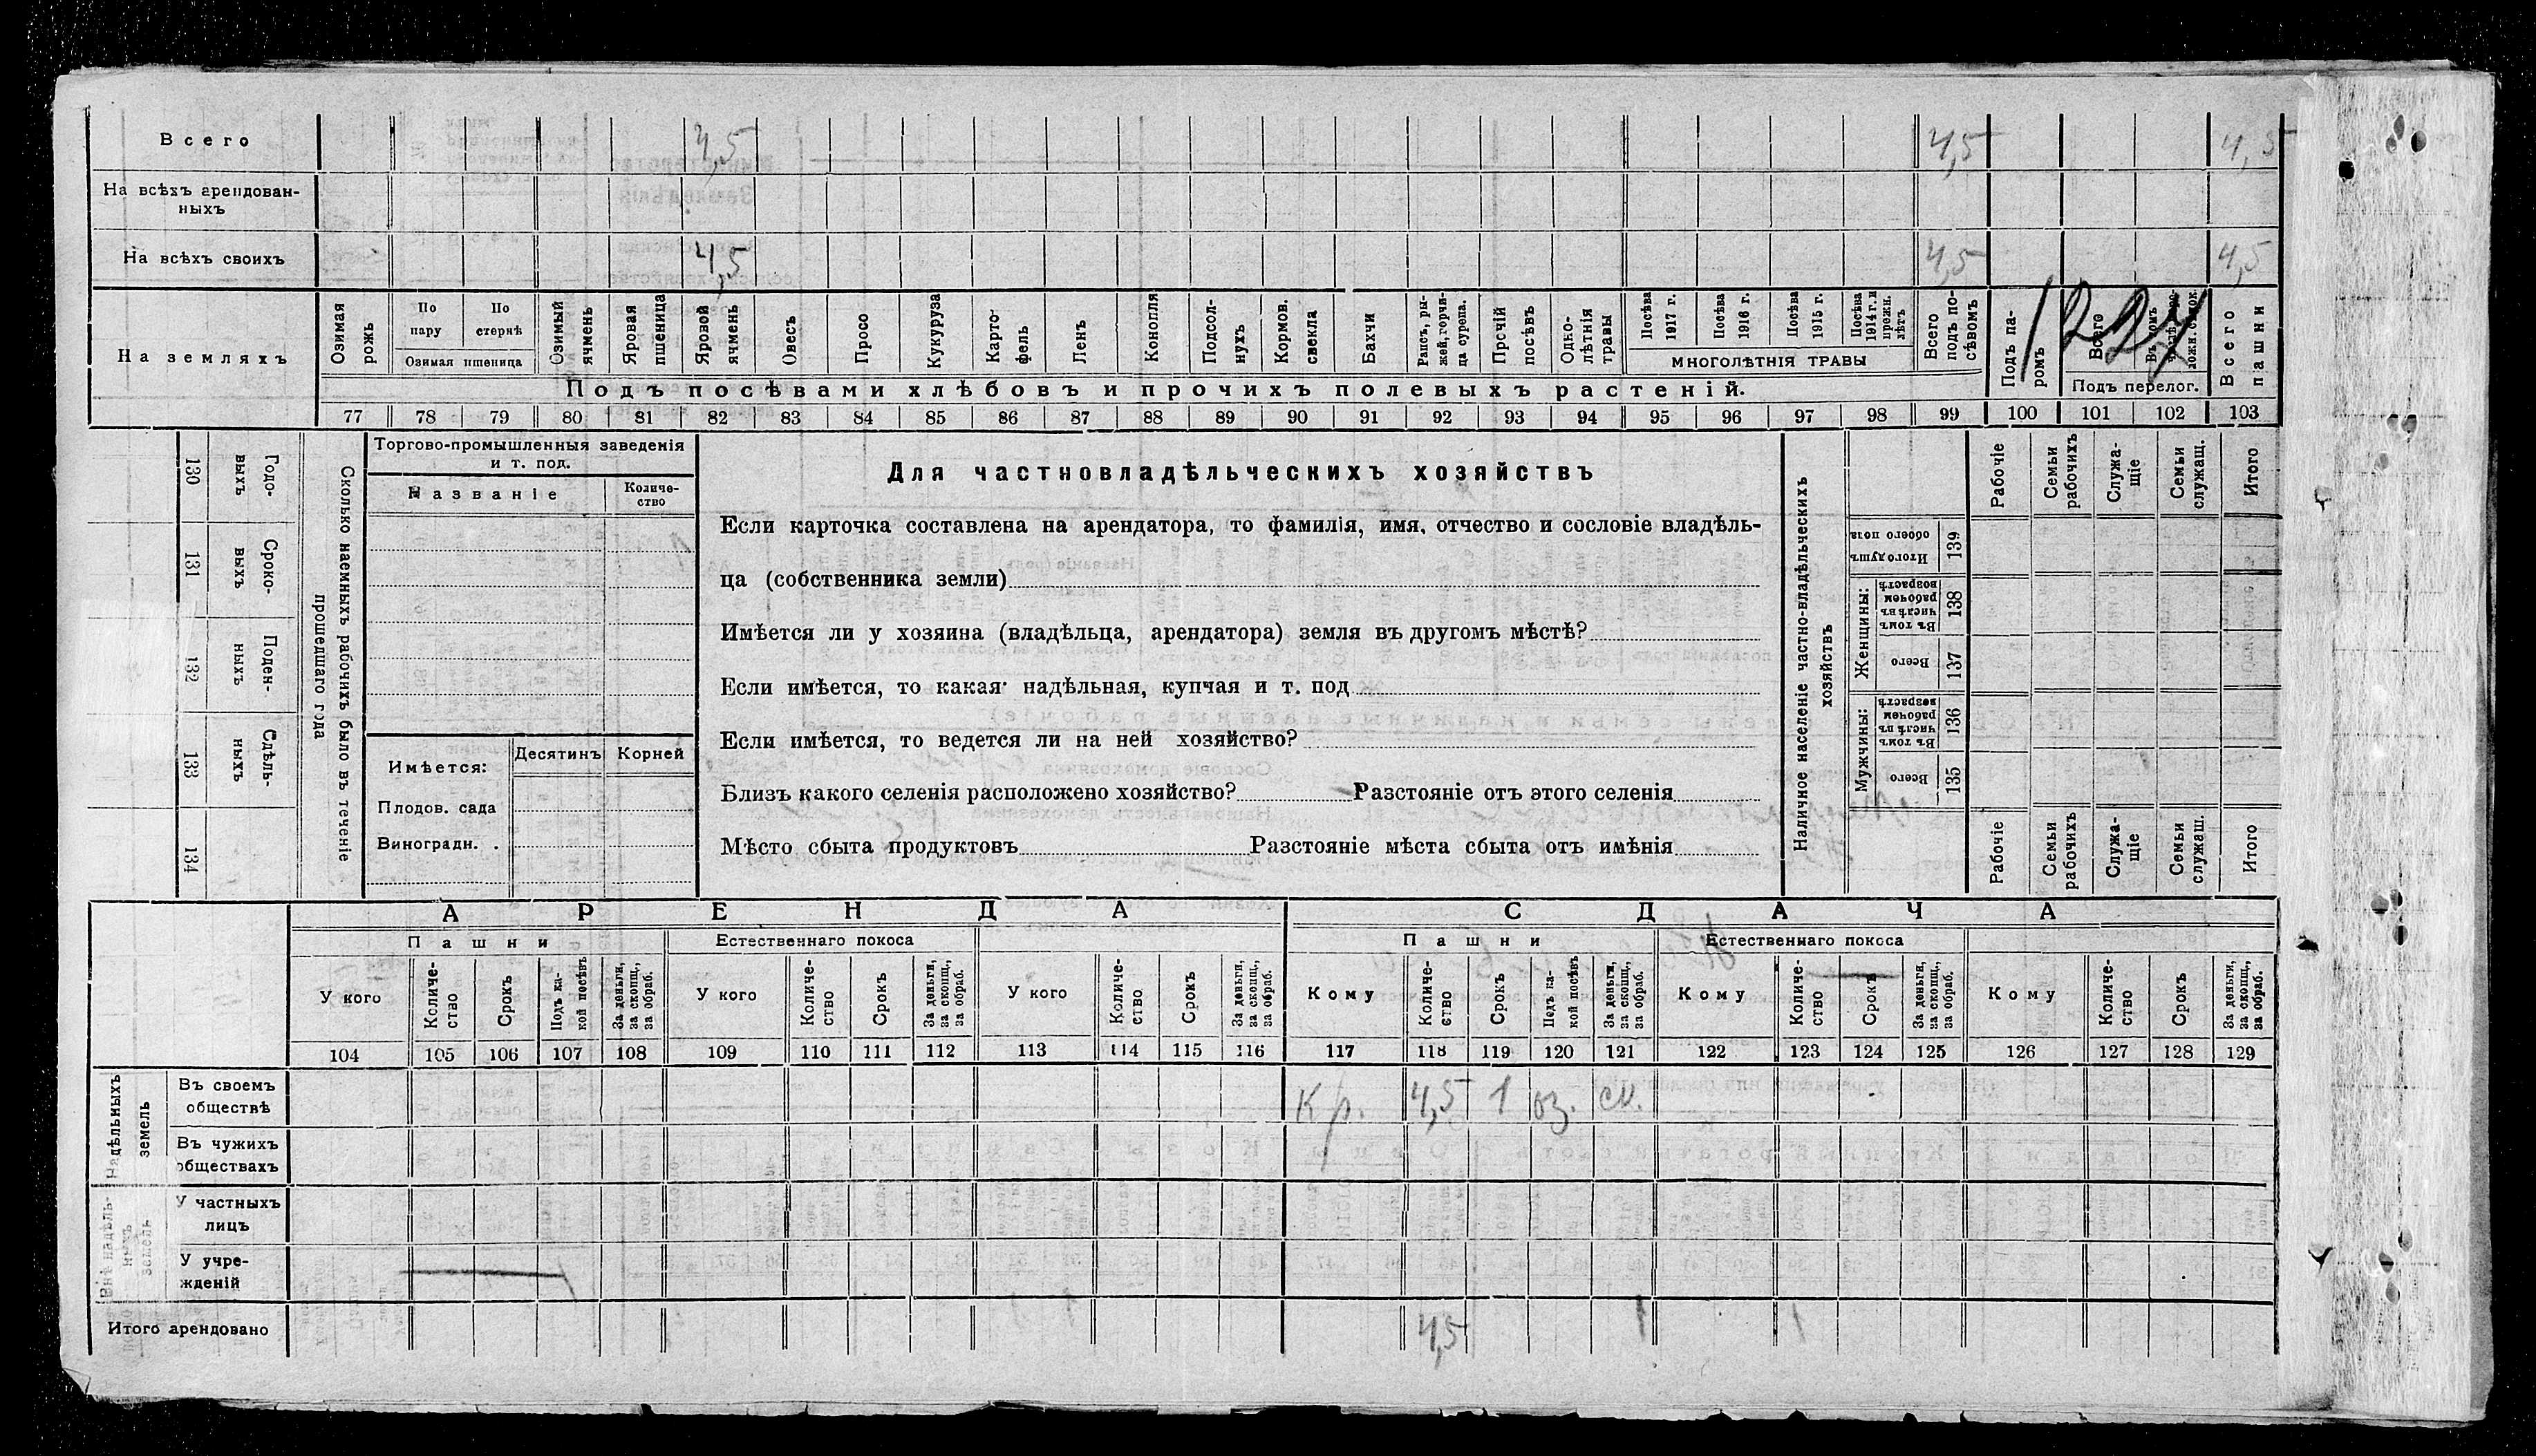 Всего 4,5 4,5 4,5
На всѣхъ арендован-
ныхъ
На всѣхъ своихъ 4,5 4,5 4,5
На земляхъ
Озимая рожь
По пару
По стернѣ
Озимая пшеница
Озимый ячмень
Яровая пшеница
Яровой ячмень
Овесъ
Просо
Кукуруза
Карто-
фель
Ленъ
Конопля
Подсол-
нухъ
Кормов. свекла
Бахчи
Рапсъ, ры-
жей, горчи-
ца сурепа.
Прочій посѣвъ
Одно-
лѣтнія травы
Посѣва 1917 г.
Посѣва 1916 г.
Посѣва 1915 г.
Посѣва 1914 г. и прежн. лѣтъ
многолѣтнія травы
Всего подъ по-
сѣвомъ
Подъ па-
ромъ
Всего
Подъ перелог.
Всего пашни
122
Подъ посѣвами хлѣбовъ и прочихъ полевыхъ растеній.
77 78 79 80 81 82 83 84 85 86 87 88 89 90 91 92 93 94 95 96 97 98 99 100 101 102 103
130 Годо-
выхъ
131 Сроко-
выхъ
132 Поден-
ныхъ
133 Сдѣль-
ныхъ
134
Сколько наемныхъ рабочихъ было въ теченіе
прошедшаго года
Торгово-промышленныя заведенія
и т. под.
Названіе
Количе-
ство
Имѣется:
Десятинъ Корней
Плодов. сада
Виноградн. .
Для частновладѣльческихъ хозяйствъ
Если карточка составлена на арендатора, то фамилія, имя, отчество и сословіе владѣль-
ца (собственника земли)
Имѣется ли у хозяина (владѣльца, арендатора) земля въ другомъ мѣстѣ?
Если имѣется, то какая: надѣльная, купчая и т. под
Если имѣется, то ведется ли на ней хозяйство?
Близъ какого селенія расположено хозяйство? Разстояніе отъ этого селенія
Мѣсто сбыта продуктовъ Разстояніе мѣста сбыта отъ имѣнія
Наличное населеніе частно-владѣльческихъ
хозяйствъ
Рабочіе
Семьи рабочихъ
Служа-
щіе
Семьи служащ.
Итого
Итого душъ обоего пола 139
Женщины:
Въ томъ числѣ въ рабочем возрастѣ 138
Всего 137
Мужчины:
Въ томъ числѣ въ рабочем возрастѣ 136
Всего 135
Рабочіе
Семьи рабочихъ
Служа-
щіе
Семьи служащ.
Итого
АРЕНДА СДАЧА
Пашни Естественнаго покоса Пашни Естественнаго покоса
У кого
Количе-
ство
Срокъ
Подъ ка-
кой посѣвъ
За деньги, за скопщ., за обраб.
У кого
Количе-
ство
Срокъ
За деньги, за скопщ., за обраб.
У кого
Количе-
ство
Срокъ
За деньги, за скопщ., за обраб.
Кому
Количе-
ство
Срокъ
Подъ ка-
кой посѣвъ
За деньги, за скопщ., за обраб.
Кому
Количе-
ство
Срокъ
За деньги, за скопщ., за обраб.
Кому
Количе-
ство
Срокъ
За деньги, за скопщ., за обраб.
104 105 106 107 108 109 110 111 112 113 114 115 116 117 118 119 120 121 122 123 124 125 126 127 128 129
Надѣльныхъ земель
Въ своемъ
обществѣ
Кр. 4,5 1 оз. ск.
Въ чужихъ
обществахъ
Внѣ надѣль-
ныхъ земель
У частныхъ
лицъ
У учре-
жденій
Итого арендовано 4,5